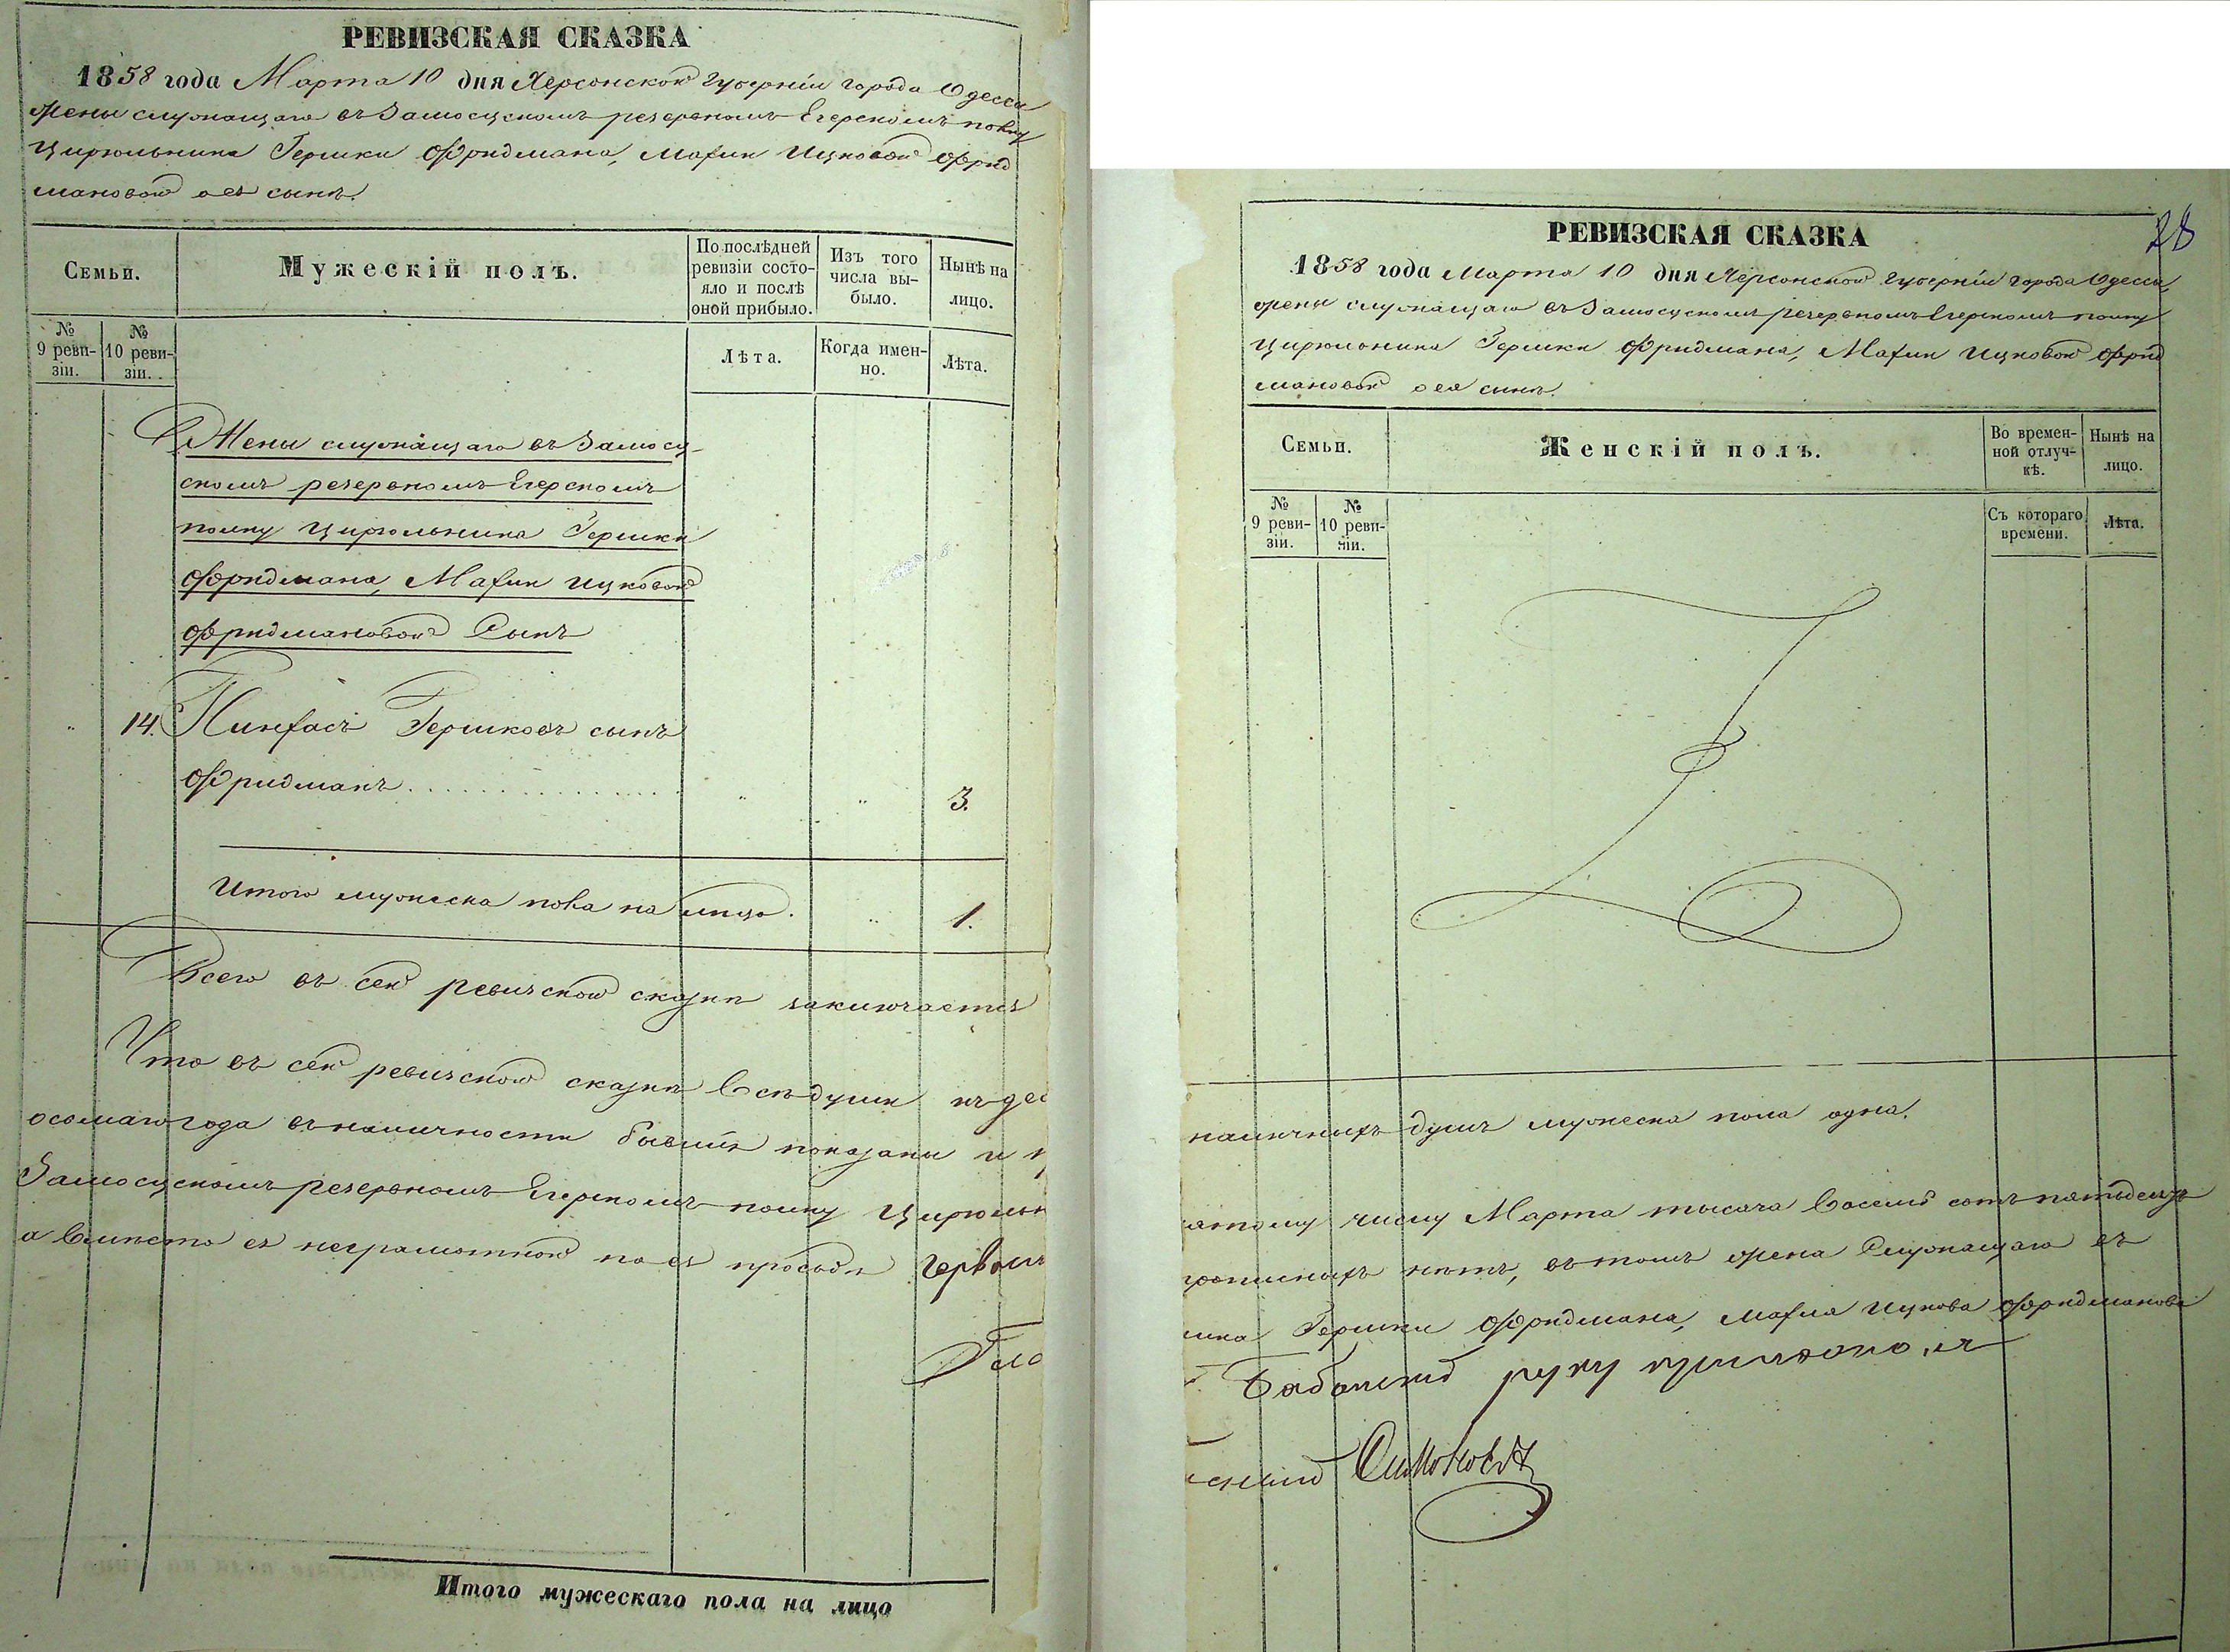 РЕВИЗСКАЯ СКАЗКА
1858 года Марта 10 дня Херсонской Губерніи города Одессы
жены служащаго въ Замосцскомъ резервномъ Егерскомъ полку
Цирюльника Гершки Фридмана, Махли Ицковой Фрид
мановой о ея сынѣ.
Семьи.
Мужескій полъ.
По послѣдней ревизіи состо-
яло и послѣ
оной прибыло.
Изъ того
числа вы-
было.
Нынѣ на
лицо.
№
9 реви-
зіи.
№
10 реви-
зіи.
Лѣта.
Когда имен-
но.
Лѣта.
Жены служащаго въ Замосц-
скомъ резервномъ Егерскомъ
полку Цирюльника Гершки
Фридмана, Махли Ицковой
Фридмановой Сынъ
" 14. Пинхасъ Гершковъ сынъ
Фридманъ . . . . . . . . . . . . . . . " " 3.
Итого мужеска пола на лицо. " 1.
Всего въ сей ревизской сказкѣ заключается
Что въ сей ревизской сказкѣ всѣ души къ дес
осьмаго года въ наличности бывшія показаны и п
Замосцскомъ резервномъ Егерскомъ полку Цирюльн
а вмѣсто ея неграмотной по ея просьбѣ
Гла
Итого мужескаго пола на лицо
28
РЕВИЗСКАЯ СКАЗКА
1858 года Марта 10 дня Херсонской Губерніи города Одессы,
жены служащаго въ Замосцскомъ резервномъ Егерскомъ полку
Цирюльника Гершки Фридмана, Махли Ицковой Фрид
мановой о ея сынѣ.
Семьи.
Женскій полъ.
Во времен-
ной отлуч-
кѣ.
Нынѣ на
лицо.
№
9 реви-
зіи.
№
10 реви-
зіи.
Съ котораго
времени.
Лѣта.
наличныхъ душъ мужеска пола одна.
ятому числу Марта тысяча восемь сотъ пятьдесятъ
прописныхъ нѣтъ, въ томъ жена Служащаго въ
ика Гершки Фридмана, Махля Ицкова Фридманова
руку приложилъ